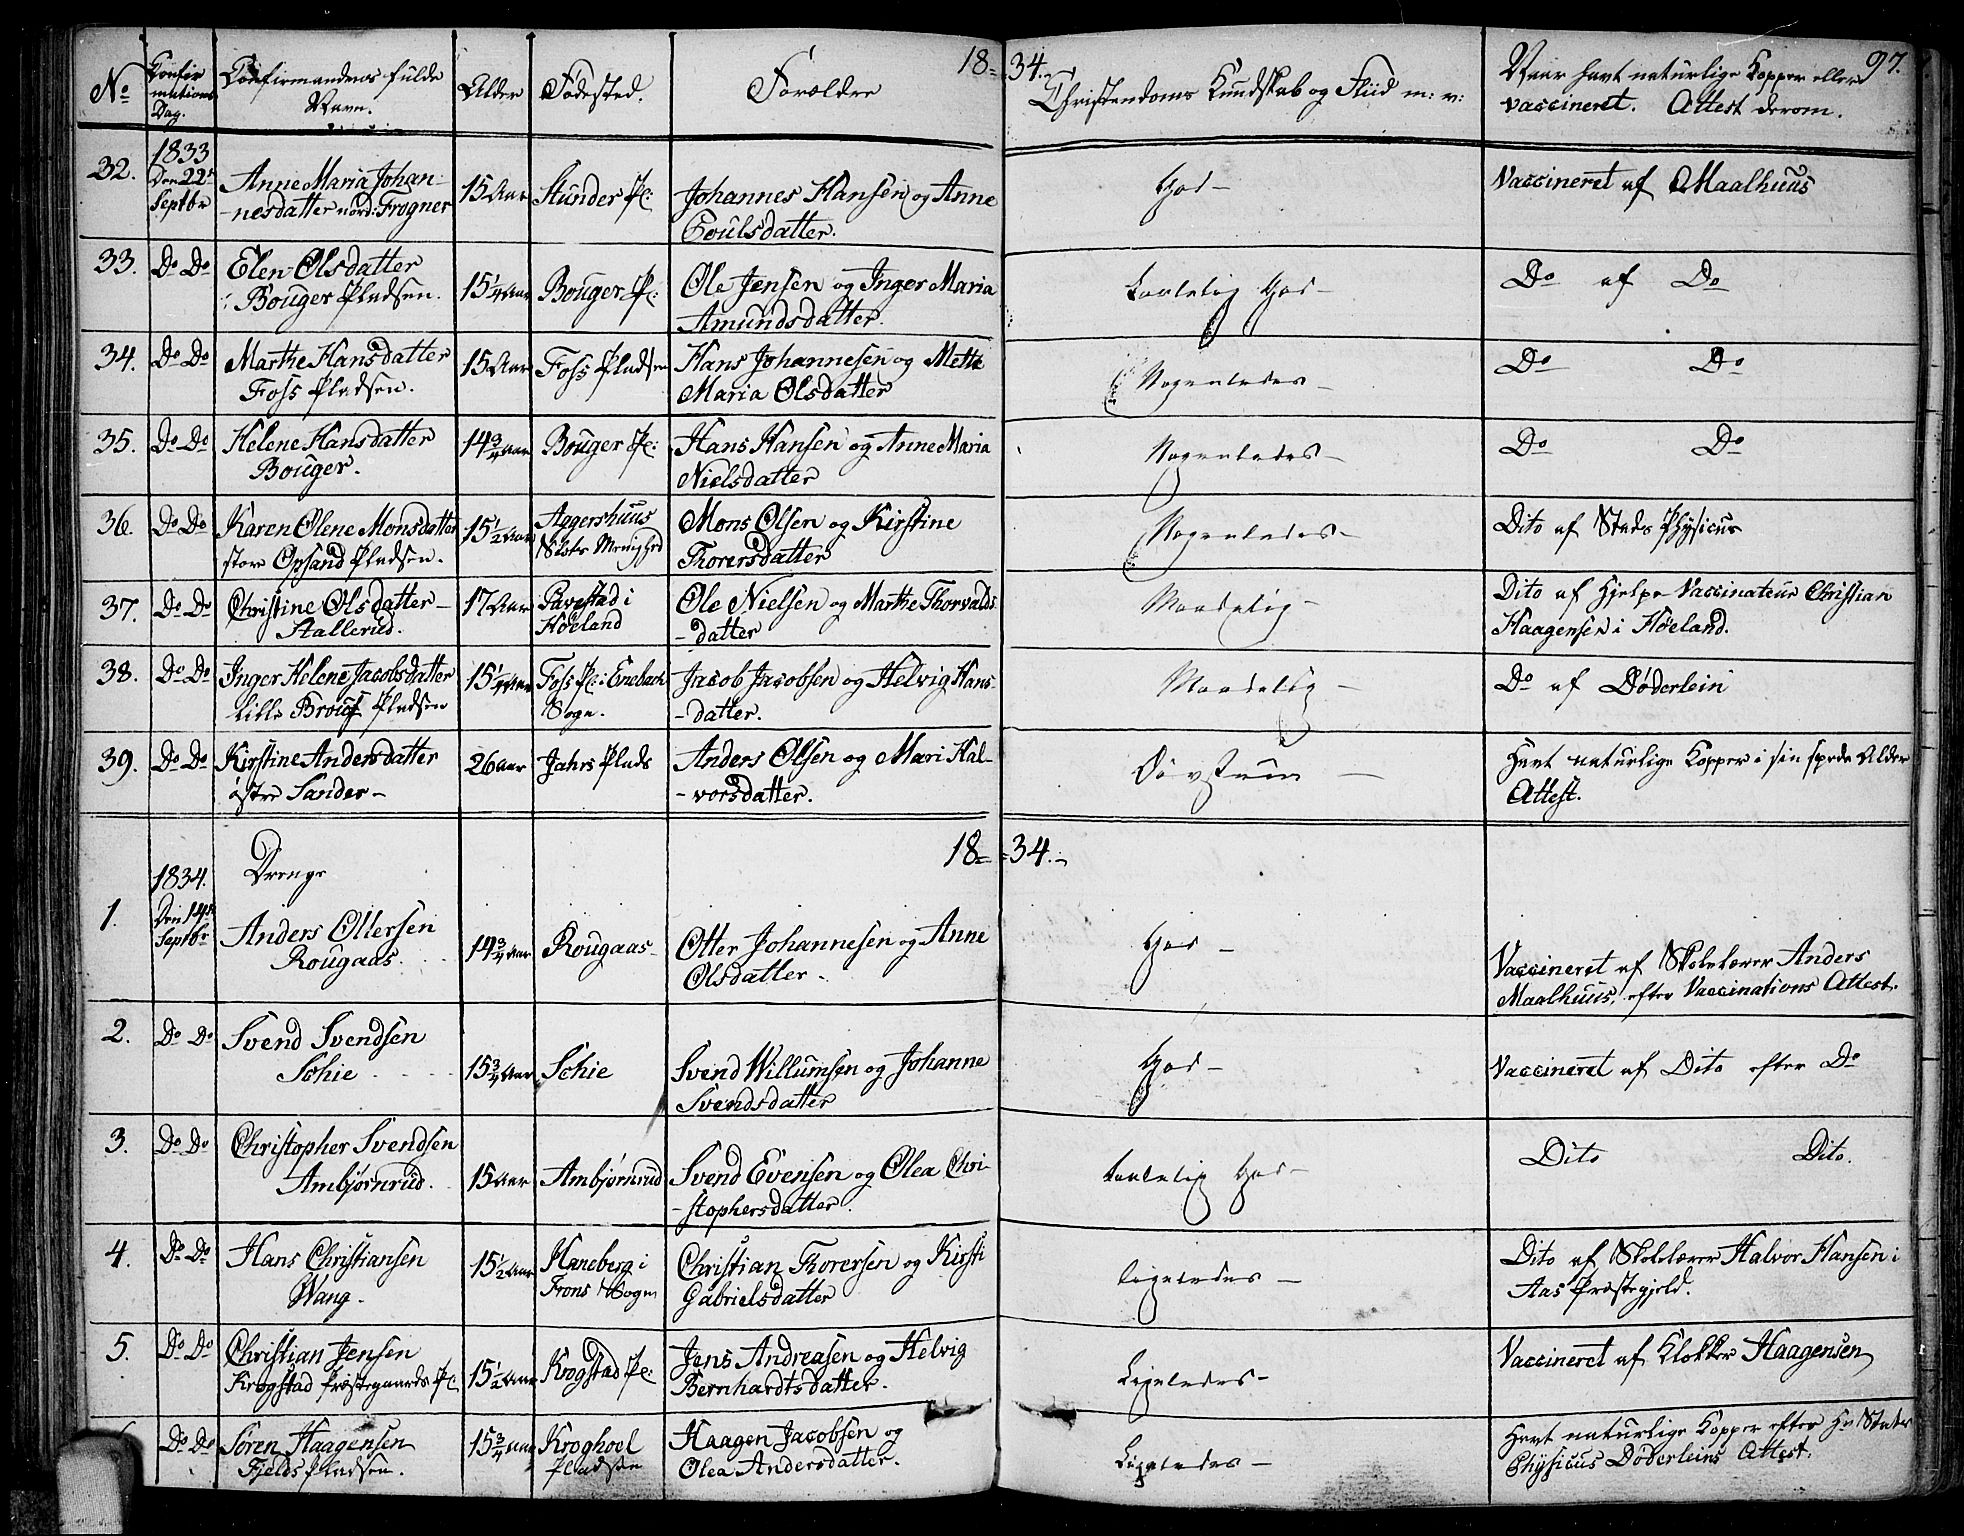 18=34.
97.
No
Confir
mations
Dag.
Confirmandens fulde
Navn.
Alder
Fødested.
Forældre
Christendoms Kundskab og Fliid m: v:
Naar havt naturlige Kopper eller
vaccineret. Attest derom.
32.
1833
Den 22de
Septbr
Anne Maria Johan-
-nesdatter nord: Frogner
15 Aar
Stunder Pl:
Johannes Hansen og Anne
Poulsdatter.
God -
Vaccineret af Maalhuus
33.
Do Do
Elen Olsdatter
Bouger Pladsen.
15¼ Aar
Bouger Pl:
Ole Jensen og Inger Maria
Amundsdatter.
taalelig God -
Do af Do
34.
Do Do
Marthe Hansdatter
Foss Pladsen.
15 Aar
Foss Pladsen
Hans Johannesen og Mette
Maria Olsdatter
Nogenledes -
Do Do
35.
Do Do
Helene Hansdatter
Bouger.
14¾ Aar
Bouger Pl:
Hans Hansen og Anne Maria
Nielsdatter
Nogenledes -
Do Do
36.
Do Do
Karen Olene Monsdatter
store Opsand Pladsen.
15½ Aar
Aggershuus
Slots Menighed
Mons Olsen og Kirstine
Thorersdatter
Nogenledes -
Dito af Stads Physicus
37.
Do Do
Christine Olsdatter -
Stallerud.
17 Aar
Pavestad i
Høeland
Ole Nielsen og Marthe Thorvalds
-datter
Maadelig -
Dito af Hjelpe Vaccinateur Christian
Haagensen i Høeland.
38.
Do Do
Inger Helene Jacobsdatter
lille Pladsen
15¼ Aar
Foss Pl: Enebach
Sogn.
Jacob Jacobsen og Helvig Hans-
-datter.
Maadelig -
Do af Døderlein
39.
Do Do
Kirstine Andersdatter
østre Sander -
26 Aar
Jahrs Plads
Anders Olsen og Mari Hal-
-vorsdatter.
Døvstum -
Havt naturlige Kopper i sin spede Alder
Attest.
18=34.
1834.
Drenge
1.
Den 14de
Septbr
Anders Ottersen
Rougaas.
14¾ Aar
Rougaas -
Otter Johannesen og Anne
Olsdatter.
God -
Vaccineret af Skolelærer Anders
Maalhuus, efter Vaccinations Attest.
2.
Do Do
Svend Svendsen
Schie
15¾ Aar
Schie
Svend Willumsen og Johanne
Svendsdatter
God -
Vaccineret af Dito efter Do
3.
Do Do
Christopher Svendsen
Ambjørnrud.
15 Aar
Ambjørnrud
Svend Evensen og Olea Chri-
-stophersdatter.
taalelig God -
Dito Dito.
4.
Do Do
Hans Christiansen
Wang.
15½ Aar
Haneberg i
Frons Sogn
Christian Torersen og Kirsti
Gabrielsdatter
ligeledes -
Dito af Skolelærer Halvor Hansen i
Aas Præstegjeld.
5.
Do Do
Christian Jensen
Krogstad Præstegaards Pl.
15½ Aar
Krogstad Pl:
Jens Andreasen og Helvig
Bernhardtsdatter.
Ligeledes -
Vaccineret af Klokker Haagensen
Do Do
Søren Haagensen
Fjelds Pladsen.
15¾ Aar
Kroghoel
Pladsen
Haagen Jacobsen og
Olea Andersdatter.
Ligeledes -
Havt naturlige Kopper efter Hr Stads
Physicus Døderleins Attest.